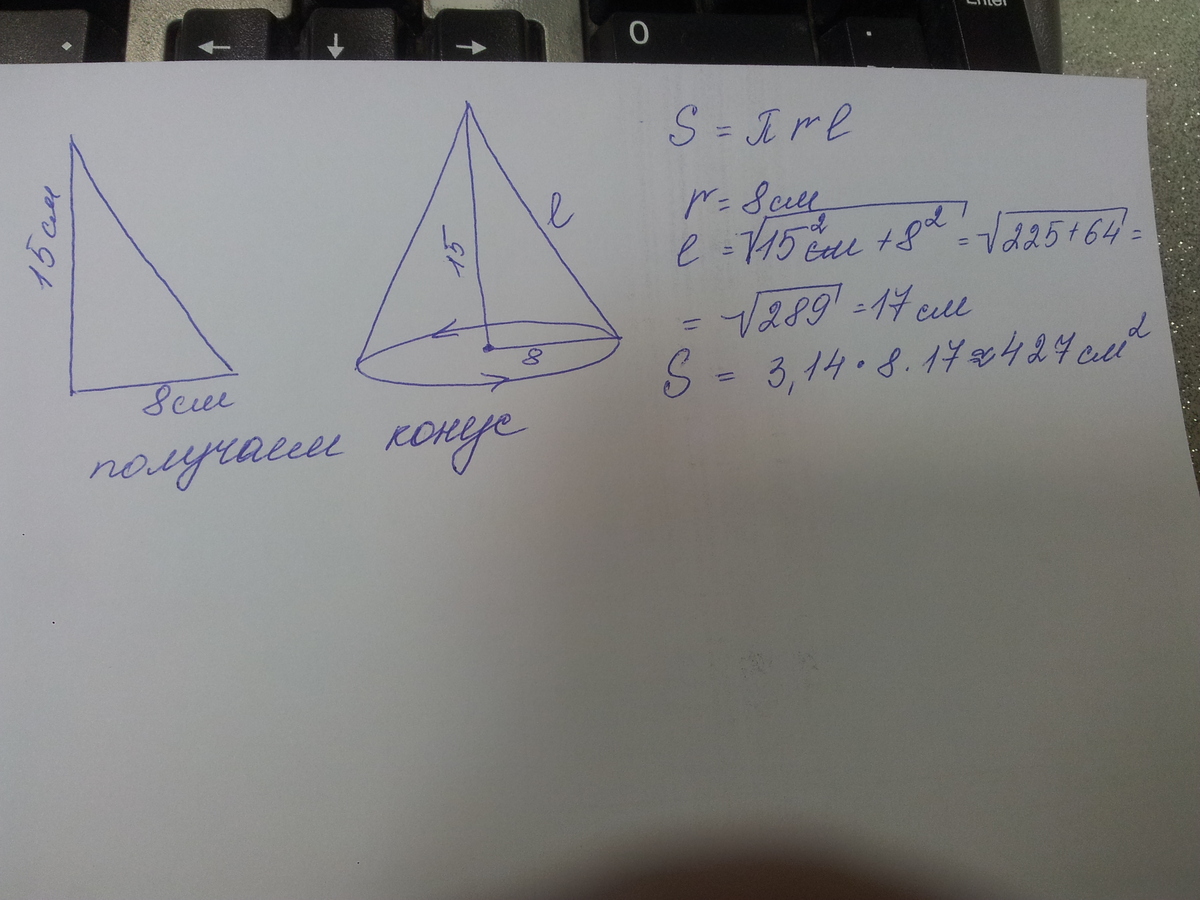 ← ↓ → 0 . Enter
15 см
8 см
получаем конус
15
8
l
S = π r l
r = 8 см
l = √15² см + 8² = √225+64 =
= √289 = 17 см
S = 3,14 · 8 . 17 ≈ 427 см²